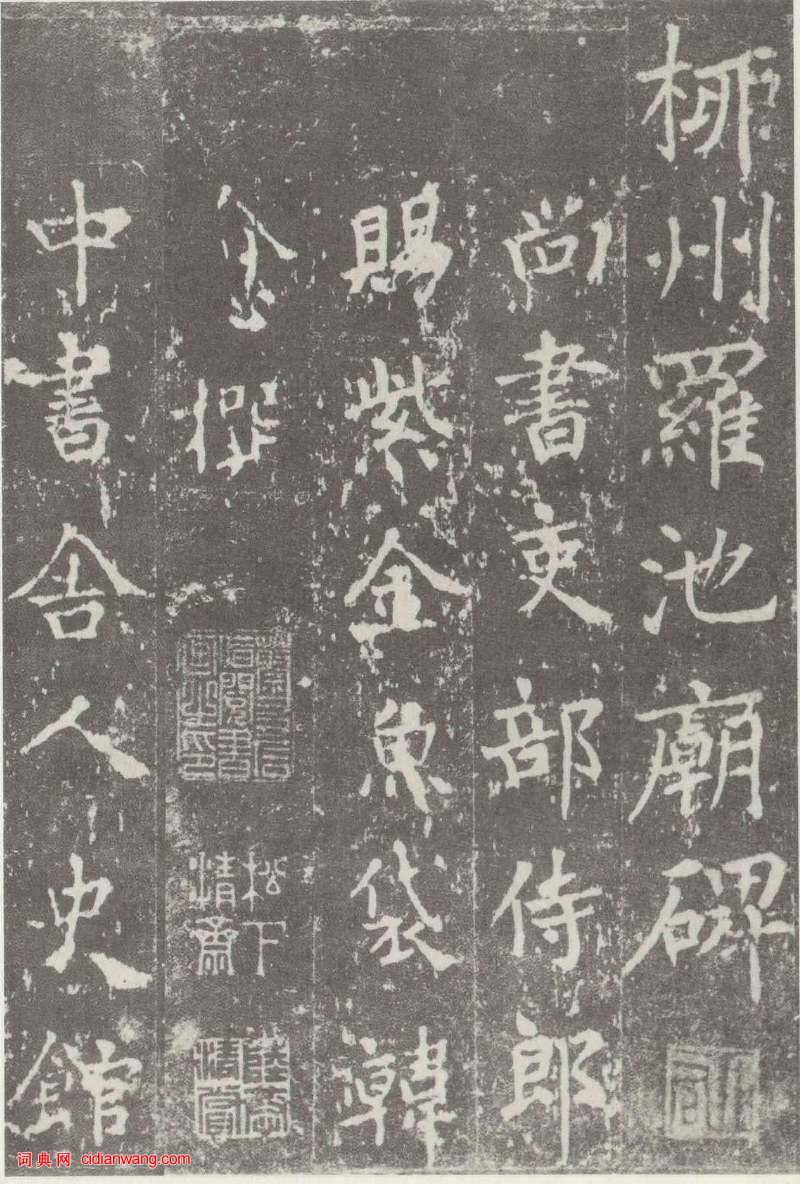 柳州羅池廟碑
尚書吏部侍郎
賜紫金魚袋韓
愈撰
松下
清齋
中書舍人史館
词典网 cidianwang.com